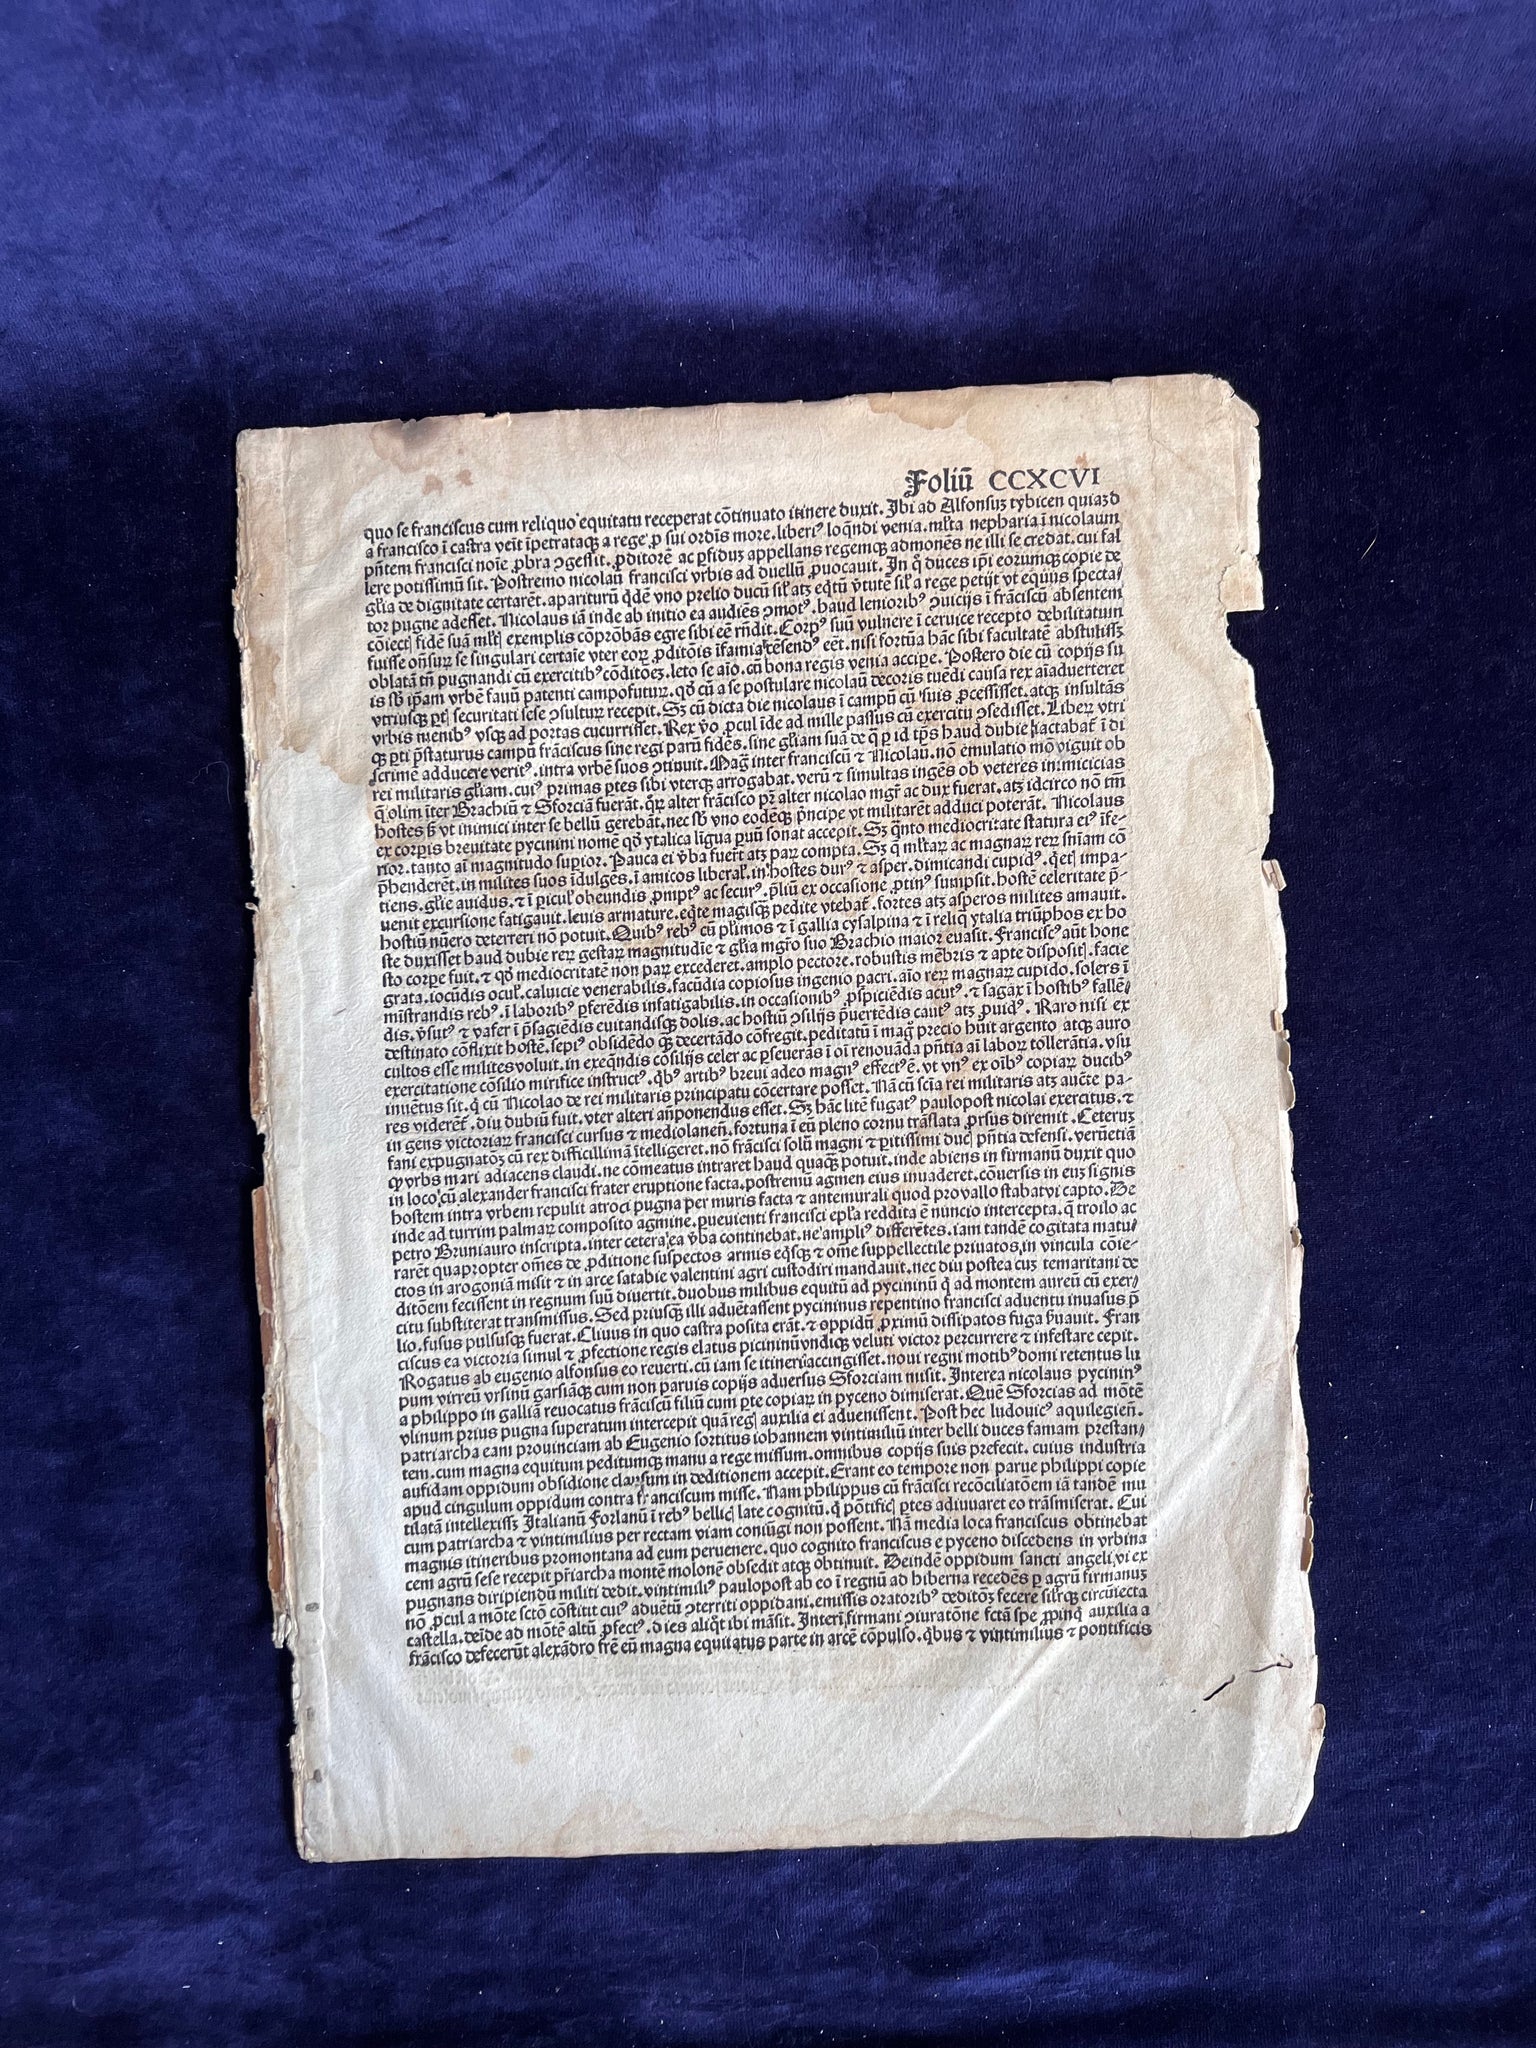 Foliū CCXCVI
quo se franciscus cum reliquo equitatu receperat cōtinuato itinere duxit. Ibi ad Alfonsuz tybicen quiazd
a francisco ī castra veīt īpetrataqȝ a rege ꝓ sui ordīs more. liberiꝰ loq̄ndi venia. ml̄ta nepharia ī nicolaum
pn̄tem francisci noīe ꝓbra ↄgessit. ꝓditorē ac ꝑfiduz appellans regemqȝ admonēs ne illi se credat. cui fal
lere potissimū sit. Postremo nicolaū francisci vrbis ad duellū ꝓuocauit. In duces ip̄i eorumqȝ copie de
gl̄ia de dignitate certarēt. apariturū q̄dē vno prelio ducū sil̓ atz eq̄tū v̄tutē sil̓ a rege petijt vt equijs specta/
tor pugne adesset. Nicolaus iā inde ab initio ea audiēs ↄmotꝰ. haud leniorībꝰ ↄuicijs ī frāciscū absentem
cōiect fidē suā exemplis cōprobās egre sibi eē rn̄dit. Corpꝰ suū vulnere ī ceruice recepto debilitatum
fuisse se singulari certaīe vter eoꝝ ꝓditōis īfamia cēsendꝰ eēt. nisi fortūa hāc sibi facultatē abstulissȝ
oblatā tn̄ pugnandi cū exercitibꝰ cōditōeȝ. leto se aīo. cū bona regis venia accipe. Postero die cū copijs su
is sb̄ ip̄am vrbē fauū patenti campo futuꝝ. qd̓ cū a se postulare nicolaū decoris tuēdi causa rex aīaduerteret
vtriusqȝ securitati sese ↄsultuꝝ recepit. Sȝ cū dicta die nicolaus ī campū cū suis ꝓcessisset. atqȝ insultās
vrbis menibꝰ vsqȝ ad portas cucurrisset. Rex v̄o ꝓcul īde ad mille passus cū exercitu ↄsedisset. Libeꝝ vtri
qȝ p̄staturus campū frāciscus sine regi parū fidēs. sine gl̄iam suā de id tp̄s haud dubie iactabat̓ ī di
scrimē adducere veritꝰ. intra vrbē suos ↄtinuit. Mag inter franciscū ⁊ Nicolaū. nō emulatio mō viguit ob
rei militaris gl̄iam. cuiꝰ primas ꝑtes sibi vterqȝ arrogabat. verū ⁊ simultas ingēs ob veteres inimicicias
q̄ olim īter Brachiū ⁊ Sforciā fuerāt. alter frācisco alter nicolao mgr̄ ac dux fuerat. atȝ idcirco nō tm̄
hostes vt inimici inter se bellū gerebāt. nec sb̄ vno eodēqȝ p̄ncipe vt militarēt adduci poterāt. Nicolaus
ex corꝑis breuitate pycinini nomē qd̓ ytalica līgua sonat accepit. Sȝ q̄nto mediocritate statura eiꝰ īfe-
rior. tanto aī magnitudo supior. Pauca ei v̄ba fuer̄t atȝ paꝝ compta. Sȝ ac magnaꝝ reꝝ sn̄iam cō
p̄henderēt. in milites suos īdulgēs. ī amicos liberal̓. in hostes durꝰ ⁊ asper. dimicandi cupidꝰ. impa-
tiens. gl̄ie auidus. ⁊ ī obeundis ꝓmptꝰ ac securꝰ. p̄liū ex occasione ꝓtinꝰ sumpsit. hostē celeritate p̄-
uenit excursione fatigauit. leuis armature. eq̄te magisqȝ pedite vtebat̓. fortes atȝ asperos milites amauit.
hostiū nūero deterreri nō potuit. Quibꝰ rebꝰ cū pl̓imos ⁊ ī gallia cysalpina ⁊ ī reliq̄ ytalia triūphos ex ho
ste duxisset haud dubie reꝝ gestaꝝ magnitudīe ⁊ gl̄ia mgr̄o suo Brachio maior euasit. Franciscꝰ aūt hone
sto corꝑe fuit. ⁊ qd̓ mediocritatē non paꝝ excederet. amplo pectore. robustis mēbris ⁊ apte disposit. facie
grata. iocūdis ocul̓. caluicie venerabilis. facūdia copiosus ingenio pacri. aīo reꝝ magnaꝝ cupido. solers ī
mīstrandis rebꝰ. ī laboribꝰ ꝑferēdis infatigabilis. in occasionibꝰ ꝓspiciēdis acutꝰ. ⁊ sagax ī hostibꝰ fallē/
dis. v̄sutꝰ ⁊ vafer ī p̄sagiēdis euitandisqȝ dolis. ac hostiū ↄsilijs p̄uertēdis cautꝰ atȝ ꝓuidꝰ. Raro nisi ex
destinato cōflixit hostē. sepiꝰ obsidēdo qȝ decertādo cōfregit. peditatū ī mag̓ precio huit argento atqȝ auro
cultos esse milites voluit. in exeq̄ndis cōsilijs celer ac ꝑseuerās ī oī renouāda pn̄tia aī laboꝝ tollerātia. vsu
exercitatione cōsilio mirifice instructꝰ. q̄bꝰ artibꝰ breui adeo magnꝰ effectꝰ ē. vt vnꝰ ex oībꝰ copiaꝝ ducibꝰ
inuētus sit. q̄ cū Nicolao de rei militaris principatu cōcertare posset. Nā cū scīa rei militaris atȝ aucte pa-
res videret̓. diu dubiū fuit. vter alteri an̄ponendus esset. Sȝ hāc litē fugatꝰ paulopost nicolai exercitus. ⁊
in gens victoriaꝝ francisci cursus ⁊ mediolanen̄. fortuna ī eū pleno cornu trāslata ꝓrsus diremit. Ceteruȝ
fani expugnatōȝ cū rex difficillimā ītelligeret. nō frācisci solū magni ⁊ ꝑitissimi duc pn̄tia defensi. verūetiā
qȝ vrbs mari adiacens claudi. ne cōmeatus intraret haud quaqȝ potuit. inde abiens in firmanū duxit quo
in loco cū alexander francisci frater eruptione facta. postremū agmen eius inuaderet. cōuersis in euȝ signis
hostem intra vrbem repulit atroci pugna per muris facta ⁊ antemurali quod pro vallo stabat vi capto. De
inde ad turrim palmaꝝ composito agmine. ꝑueuienti francisci epl̄a reddita ē nuncio intercepta. q̄ troilo ac
petro Bruniauro inscripta. inter cetera ea v̄ba continebat. ne ampliꝰ differētes. iam tandē cogitata matu/
rarēt quapropter om̄es de ꝓditione suspectos armis eq̄sqȝ ⁊ om̄e suppellectile priuatos in vincula cōie-
ctos in arogoniā misit ⁊ in arce satabie valentini agri custodiri mandauit. nec diu postea cuȝ temaritani de
ditōem fecissent in regnum suū diuertit. duobus milibus equitū ad pycininū q̄ ad montem aureū cū exer/
citu substiterat transmissus. Sed priusqȝ illi aduētassent pycininus repentino francisci aduentu inuasus p̄
lio. fusus pulsusqȝ fuerat. Cliuus in quo castra posita erāt. ⁊ oppidū ꝓximū dissipatos fuga s̄uauit. Fran
ciscus ea victoria simul ⁊ ꝓfectione regis elatus picininū vndiqȝ veluti victor percurrere ⁊ infestare cepit.
Rogatus ab eugenio alfonsus eo reuerti. cū iam se itineri accingisset. noui regni motibꝰ domi retentus lu
pum virreū vrsinū garsiāqȝ cum non paruis copijs aduersus Sforciam misit. Interea nicolaus pycininꝰ
a philippo in galliā reuocatus frāciscū filiū cum ꝑte copiaꝝ in pyceno dimiserat. Quē Sforcias ad mōtē
vlinum prius pugna superatum intercepit quā reg auxilia ei aduenissent. Post hec ludouicꝰ aquilegien̄.
patriarcha eam prouinciam ab Eugenio sortitus iohannem vintimiliū inter belli duces famam prestan/
tem. cum magna equitum peditumqȝ manu a rege missum. omnibus copijs suis prefecit. cuius industria
aufidam oppidum obsidione clausum in deditionem accepit. Erant eo tempore non parue philippi copie
apud cingulum oppidum contra franciscum misse. Nam philippus cū frācisci recōciliatōem iā tandē mu
tilatā intellexissȝ Italianū Forlanū ī rebꝰ bellic late cognitū. q̄ pōtific ꝑtes adiuuaret eo trāsmiserat. Cui
cum patriarcha ⁊ vintimilius per rectam viam coniūgi non possent. Nā media loca franciscus obtinebat
magnis itineribus promontana ad eum peruenere. quo cognito franciscus e pyceno discedens in vrbina
cem agrū sese recepit pr̄iarcha montē molonē obsedit atqȝ obtinuit. Deindē oppidum sancti angeli vi ex
pugnans diripiendū militi dedit. vintimiliꝰ paulopost ab eo ī regnū ad hiberna recedēs ꝑ agrū firmanuȝ
nō ꝓcul a mōte sctō cōstitit cuiꝰ aduētū ↄterriti oppidani. emissis oratoribꝰ deditōȝ fecere circūiecta
castella. deīde ad mōtē altū ꝓfectꝰ. dies aliq̄t ibi māsit. Interī firmani ↄiuratōne fctā spe ꝓpinq̄ auxilia a
frācisco defecerūt alexādro frē eū magna equitatus parte in arcē cōpulso. q̄bus ⁊ vintimilius ⁊ pontificis